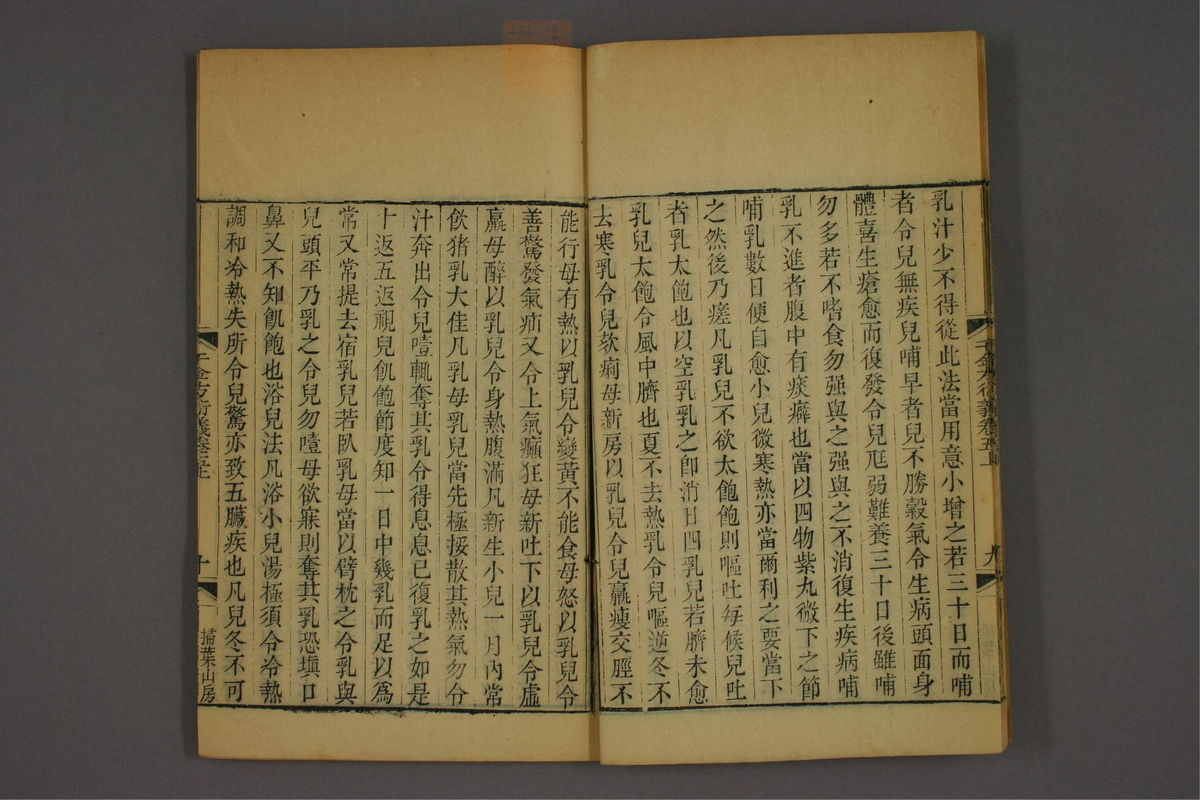 乳汁少不得從此法當用意小增之若三十日而哺
者令兒無疾兒哺早者兒不勝穀氣令生病頭面身
體喜生瘡愈而復發令兒尫弱難養三十日後雖哺
勿多若不嗜食勿强與之强與之不消復生疾病哺
乳不進者腹中有痰癖也當以四物紫丸微下之節
哺乳數日便自愈小兒微寒熱亦當爾利之要當下
之然後乃瘥凡乳兒不欲太飽飽則嘔吐每候兒吐
者乳太飽也以空乳乳之卽消日四乳兒若臍未愈
乳兒太飽令風中臍也夏不去熱乳令兒嘔逆冬不
去寒乳令兒欬痢母新房以乳兒令兒羸瘦交脛不
能行母有熱以乳兒令變黃不能食母怒以乳兒令
善驚發氣疝又令上氣癲狂母新吐下以乳兒令虛
羸母醉以乳兒令身熱腹滿凡新生小兒一月內常
飲猪乳大佳凡乳母乳兒當先極挼散其熱氣勿令
汁奔出令兒噎輒奪其乳令得息息已復乳之如是
十返五返視兒飢飽節度知一日中幾乳而足以爲
常又常提去宿乳兒若臥乳母當以臂枕之令乳與
兒頭平乃乳之令兒勿噎母欲寐則奪其乳恐塡口
鼻又不知飢飽也浴兒法凡浴小兒湯極須令冷熱
調和冷熱失所令兒驚亦致五臟疾也凡兒冬不可
千金方衍義卷五上
九
千金方衍義卷五上
十
掃葉山房